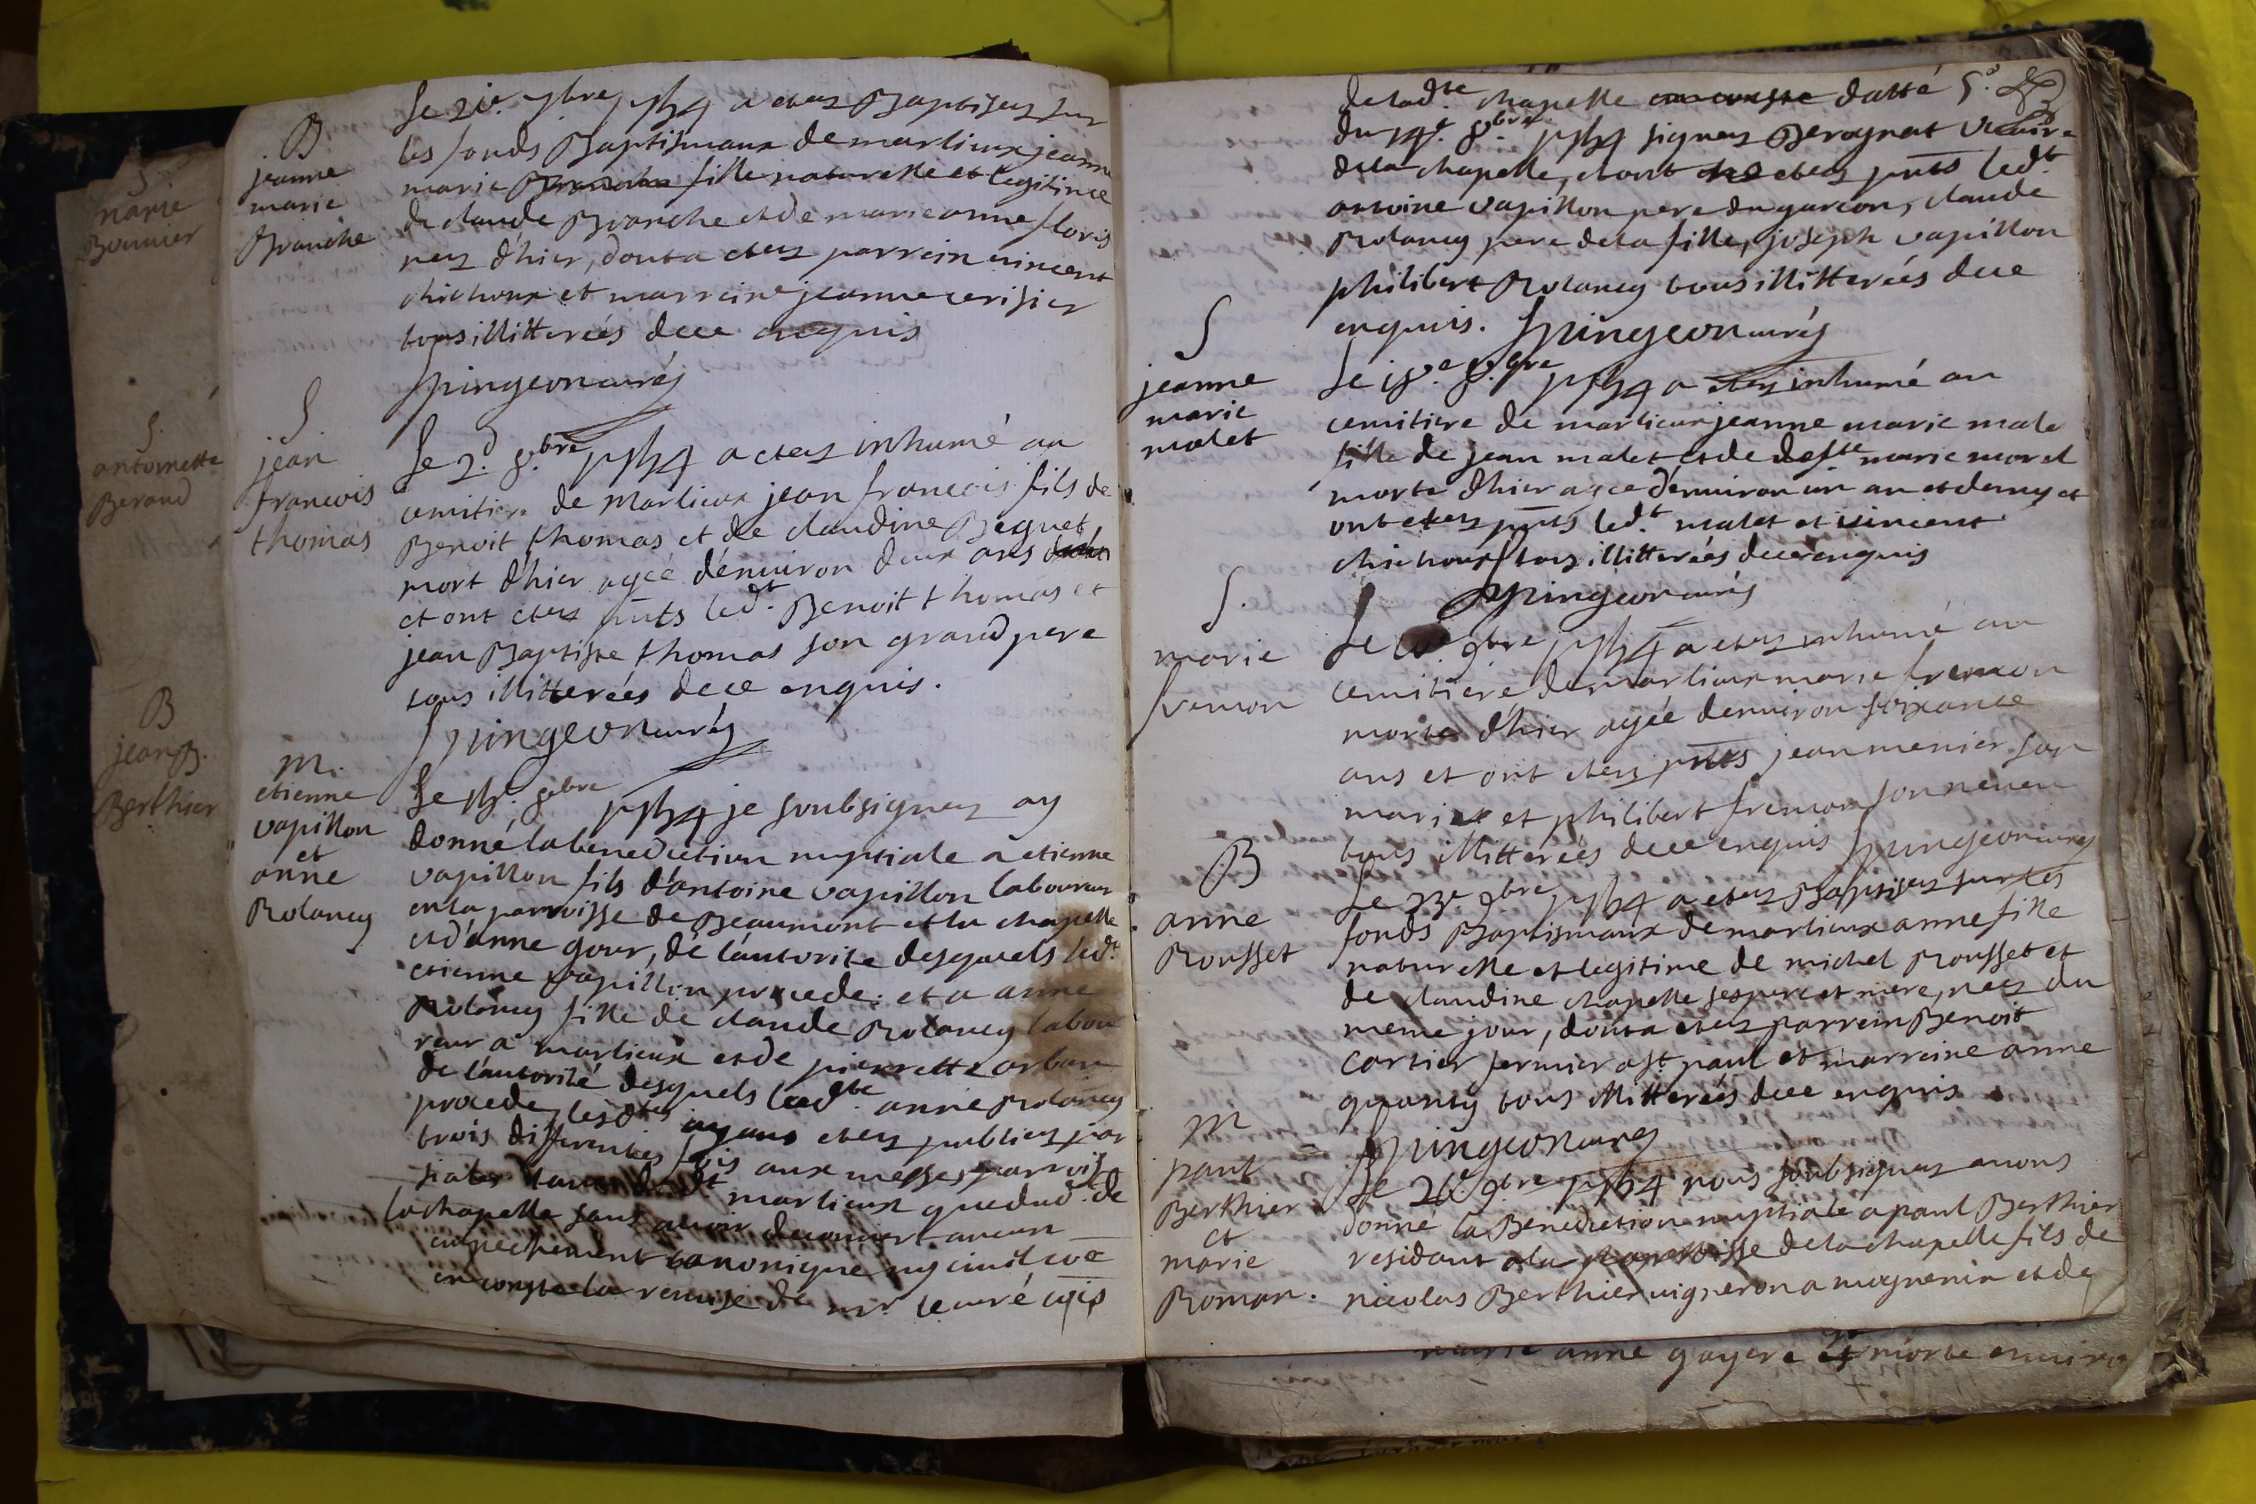 marie
Bonnier
S.
antoinette
Beraud
B
jean B.
Berthier
B
jeanne
marie
Branche
Le 21e. 7bre 1754 a etez Baptisez sur
les fonds Baptismaux de marlieux jeanne
marie fille naturelle et legitime
de claude Branche et de marie anne floris
nez d'hier, dont a etez parrein vincent
chichoux et marreine jeanne cerisier
tous illitterées de ce enquis
Spingeon curéz
S.
jean
francois
thomas
Le 2.d 8.bre 1754 a etez inhumé au
cemitiere de Marlieux jean francois fils de
Benoit thomas et de claudine Beguet
mort d'hier agée d'environ deux ans
et ont etez pnts led.t Benoit thomas et
jean Baptiste thomas son grand pere
tous illitterées de ce enquis.
Spingeon curéz
m.
etienne
vapillon
et
anne
Rolancy
Le 15.e 8bre 1754 je soubsignez ay
donné la benediction nuptiale a etienne
vapillon fils d'antoine vapillon laboureur
en la parroisse de Beaumont et la chapelle
et d'anne gour, de l'autorite desquels led.t
etienne vapillon procede: et a anne
Rolancy fille de claude Rolancy labou
reur a marlieux et de pierrette arban
de l'autorité desquels lad.te anne Rolancy
procede, lesd.tes ayans etez publiez par
trois differentes fois aux messes parrois
siales tant dud.t marlieux que dud. de
la chapelle sans avoir decouvert aucun
empechement canonique ny civil coe
en conste la remise de mr. le curé
de lad.te chapelle datté
du 14.e 8bre 1754 signez Beroynat vicaire
de la chapelle, et ont etez pnts led.t
antoine vapillon pere du garcon, claude
Rolancy pere de la fille, joseph vapillon
philibert Rolancy tous illitterées de ce
enquis. Spingeon curéz
S
jeanne
marie
malet
Le 18.e 8.bre 1754 a etez inhumé au
cemitiere de marlieux jeanne marie male
fille de jean malet et de deffte marie morel
morte d'hier agee d'environ un an et demy et
ont etez pnts led.t malet et vincent
chichoux tous illitterées de ce enquis
Spingeon curéz
S.
marie
fremon
Le 9bre 1754 a etez inhumé au
cemitiere de marlieux marie fremon
morte d'hier agée d'environ soixante
ans et ont etez pnts jean menier son
mari et philibert fremon son neveu
tous illitterées de ce enquis Spingeon curéz
B
anne
Rousset
Le 23e 9bre 1754 a etez Baptisez sur les
fonds Baptismaux de marlieux anne fille
naturelle et legitime de michel Rousset et
de claudine chapelle ses pere et mere, nez du
meme jour, dont a etez parrein Benoit
Cartier fermier a st paul et marreine anne
tous illitterées de ce enquis.
Spingeon curéz
m
paul
Berthier
et
marie
Roman.
Le 26e 9bre 1754 nous soubsignez avons
donné la Benediction nuptiale a paul Berthier
residant a la parroisse de la chapelle fils de
nicolas Berthier vigneron a mognenin et de
marie anne gayere morte